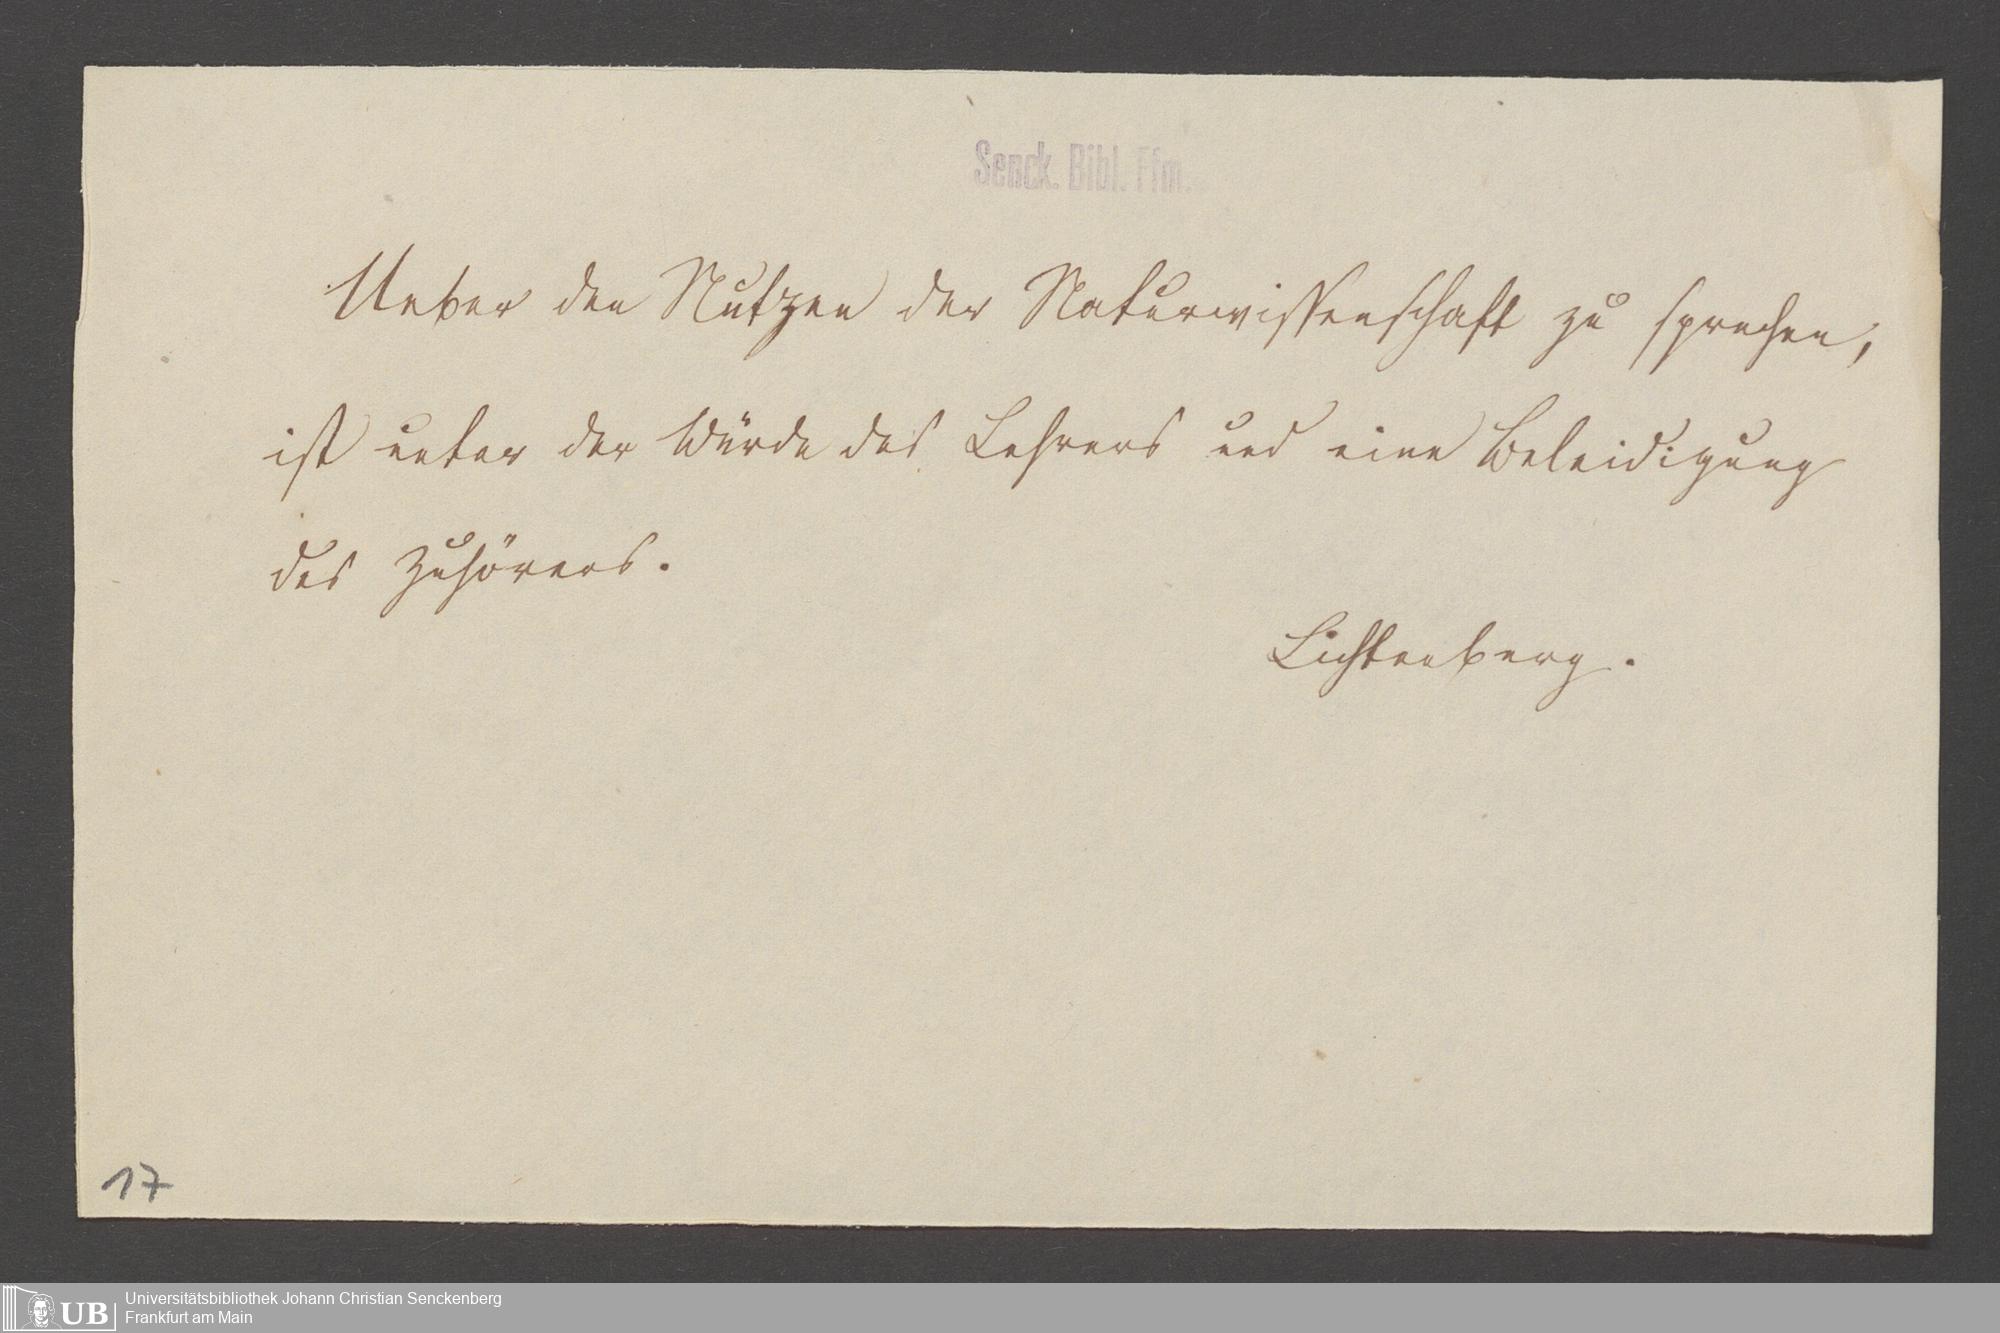 Senck. Bibl. Ffm.
Ueber den Nutzen der Naturwissenschaft zu sprechen,
ist unter der Würde des Lehrers und eine Beleidigung
des Zuhörers.
Lichtenberg.
17
UB
Universitätsbibliothek Johann Christian Senckenberg
Frankfurt am Main